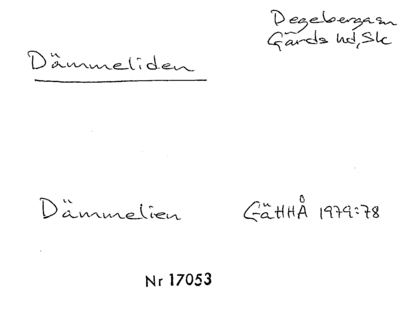 Degeberga sn
Gärds hd, Sk
Dämmeliden
Dämmelien GäHHÅ 1979:78
Nr 17053